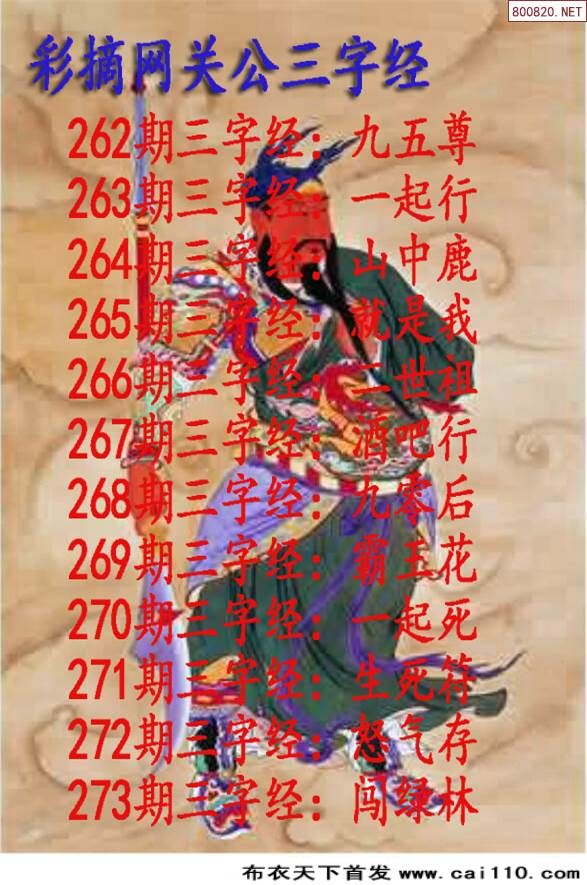 800820.NET
彩摘网关公三字经
262期三字经：九五尊
263期三字经：一起行
264期三字经：山中鹿
265期三字经：就是我
266期三字经：二世祖
267期三字经：酒吧行
268期三字经：九零后
269期三字经：霸王花
270期三字经：一起死
271期三字经：生死符
272期三字经：怒气存
273期三字经：闯绿林
布衣天下首发 www.cai110.com